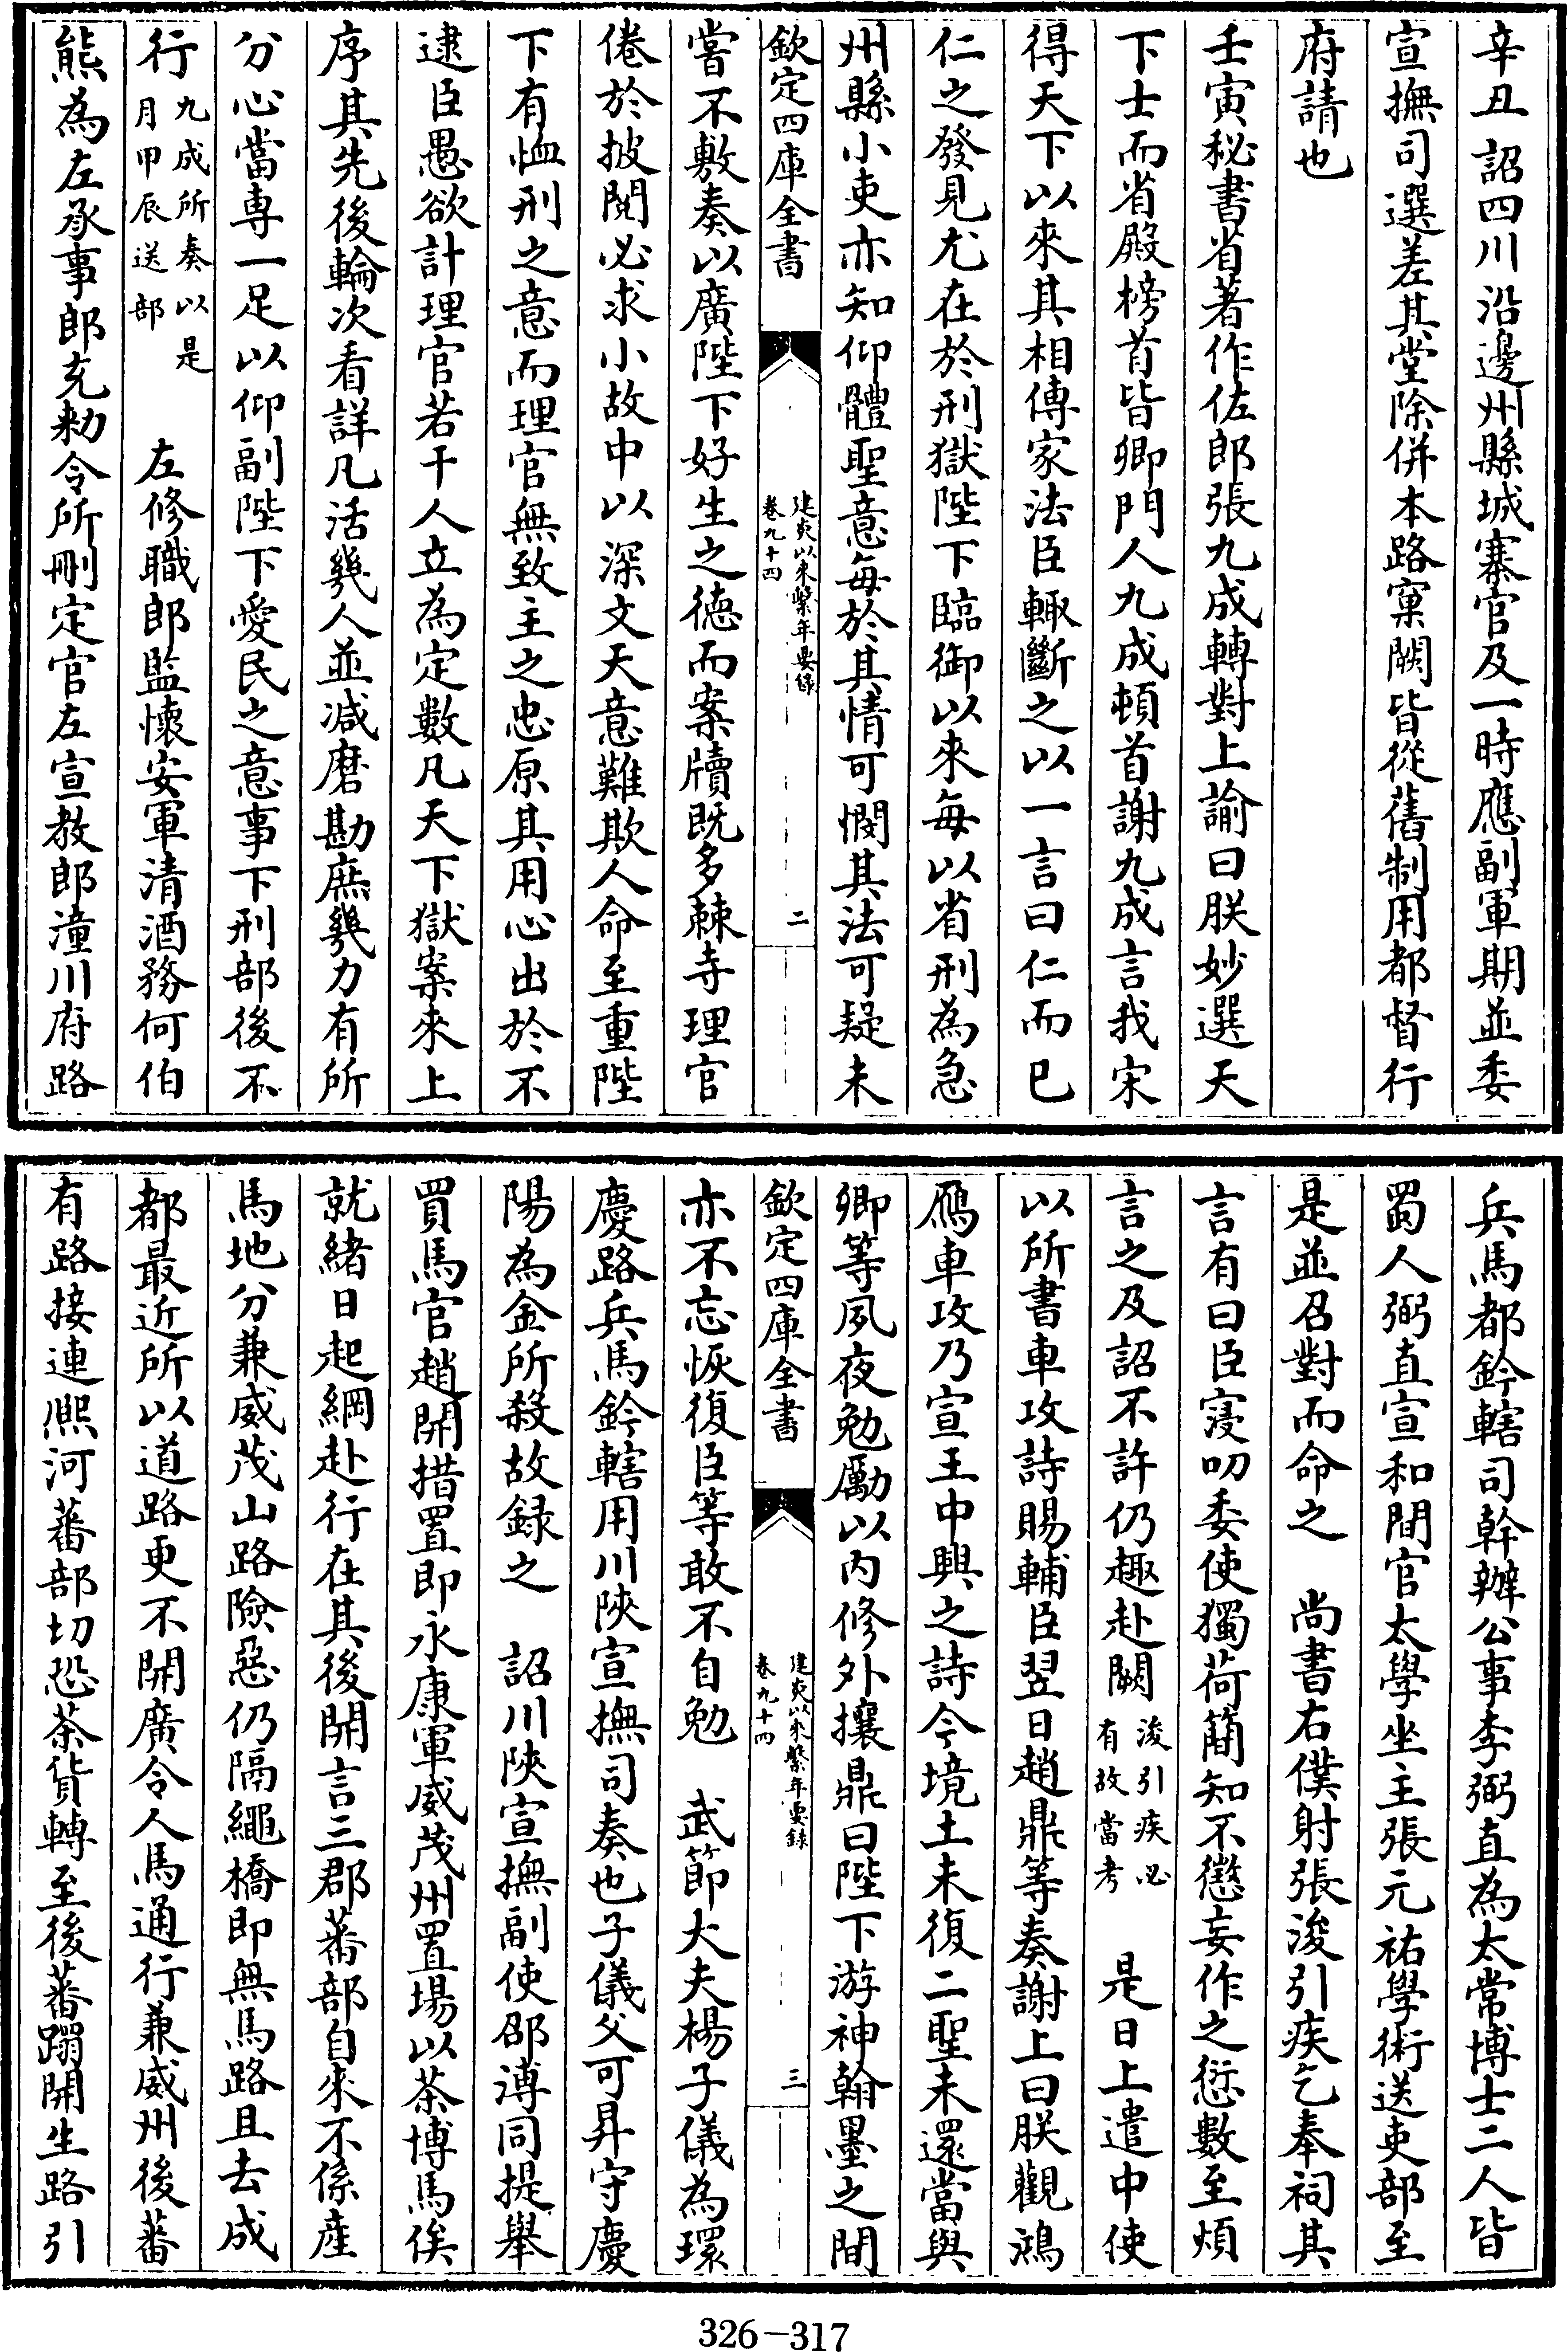 辛丑詔四川沿邊州縣城寨官及一時應副軍期並委
宣撫司選差其堂除併本路窠闕皆從舊制用都督行
府請也
壬寅秘書省著作佐郎張九成轉對上諭曰朕妙選天
下士而省殿榜首皆卿門人九成頓首謝九成言我宋
得天下以來其相傳家法臣輒斷之以一言曰仁而已
仁之發見尤在於刑獄陛下臨御以來每以省刑為急
州縣小吏亦知仰體聖意每於其情可憫其法可疑未
欽定四庫全書
建炎以來繫年要錄
卷九十四
二
嘗不敷奏以廣陛下好生之德而案牘既多棘寺理官
倦於披閱必求小故中以深文天意難欺人命至重陛
下有恤刑之意而理官無致主之忠原其用心出於不
逮臣愚欲計理官若干人立為定數凡天下獄案來上
序其先後輪次看詳凡活幾人並減磨勘庶幾力有所
分心當專一足以仰副陛下愛民之意事下刑部後不
行九成所奏以是
月甲辰送部
左修職郎監懷安軍清酒務何伯
熊為左承事郎充勅令所刪定官左宣教郎潼川府路
兵馬都鈐轄司幹辦公事李弼直為太常博士二人皆
蜀人弼直宣和間官太學坐主張元祐學術送吏部至
是並召對而命之 尚書右僕射張浚引疾乞奉祠其
言有曰臣寖叨委使獨荷簡知不懲妄作之愆數至煩
言之及詔不許仍趣赴闕浚引疾必
有故當考
是日上遣中使
以所書車攻詩賜輔臣翌日趙鼎等奏謝上曰朕觀鴻
鴈車攻乃宣王中興之詩今境土未復二聖未還當與
卿等夙夜勉勵以內修外攘鼎曰陛下游神翰墨之間
欽定四庫全書
建炎以來繫年要錄
卷九十四
三
亦不忘恢復臣等敢不自勉 武節大夫楊子儀為環
慶路兵馬鈐轄用川陝宣撫司奏也子儀父可昇守慶
陽為金所殺故録之 詔川陝宣撫副使邵溥同提舉
買馬官趙開措置即永康軍威茂州置場以茶博馬俟
就緒日起綱赴行在其後開言三郡蕃部自來不係產
馬地分兼威茂山路險惡仍隔繩橋即無馬路且去成
都最近所以道路更不開廣令人馬通行兼威州後蕃
有路接連熈河蕃部切恐茶貨轉至後蕃蹋開生路引
326-317